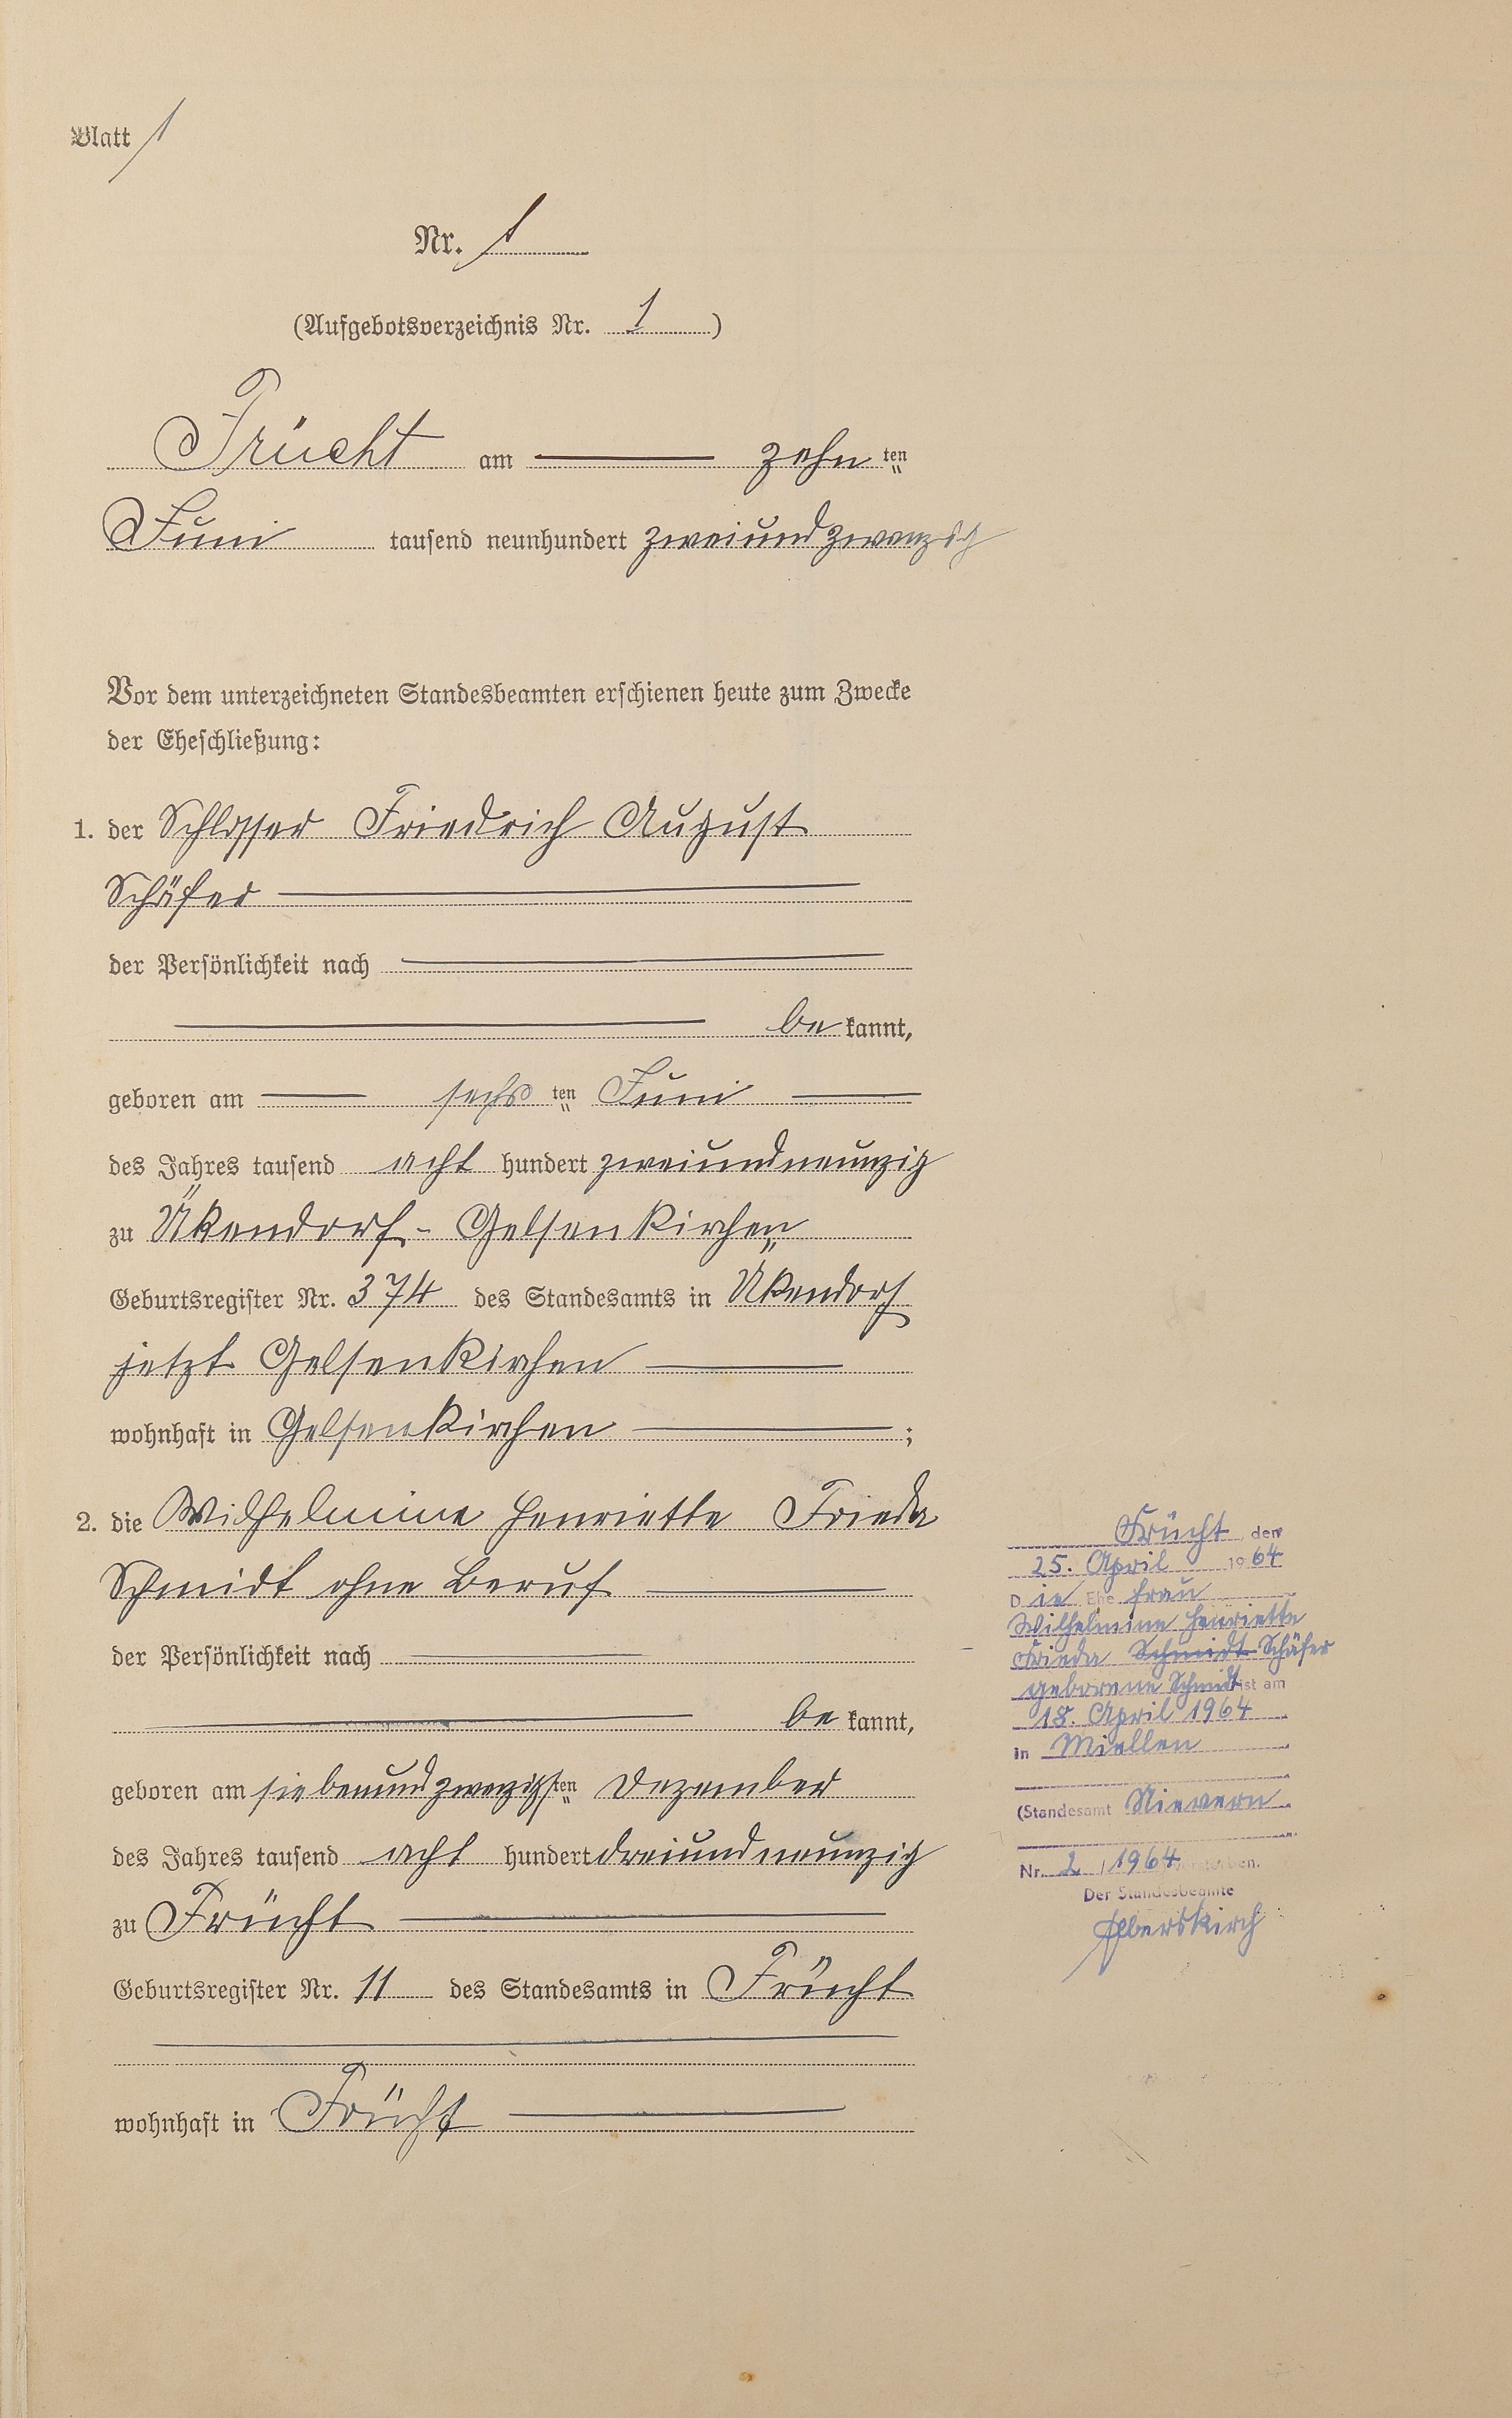 Blatt 1
Nr. 1
(Aufgebotsverzeichnis Nr. 1 )
Frücht am zehn ten
Juni tausend neunhundert zweiundzwanzig
Vor dem unterzeichneten Standesbeamten erschienen heute zum Zwecke
der Eheschließung:
1. der Schlosser Friedrich August
Schäfer
der Persönlichkeit nach
be kannt,
geboren am sechs ten Juni
des Jahres tausend acht hundert zweiundneunzig
zu Ükendorf - Gelsenkirchen
Geburtsregister Nr. 374 des Standesamts in Ükendorf
jetzt Gelsenkirchen
wohnhaft in Gelsenkirchen ;
2. die Wilhelmine Henriette Frieda
Schmidt ohne Beruf
der Persönlichkeit nach
be kannt,
geboren am siebenundzwanzigsten Dezember
des Jahres tausend acht hundert dreiundneunzig
zu Frücht
Geburtsregister Nr. 11 des Standesamts in Frücht
wohnhaft in Frücht
Frücht, den
25. April 1964
Die Ehefrau
Wilhelmine Henriette
Frieda Schmidt Schäfer
geborene Schmidt ist am
18. April 1964
in Miellen
(Standesamt Nievern
Nr. 2 / 1964 verstorben.
Der Standesbeamte